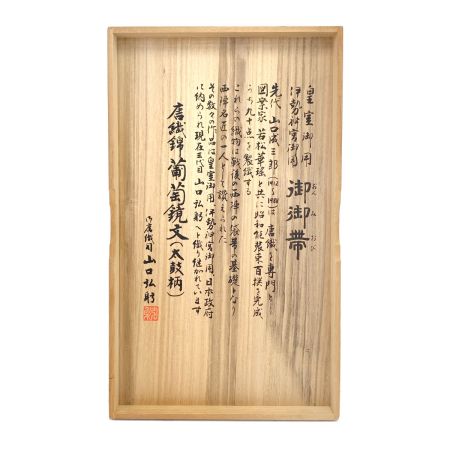 皇室御用
伊勢神宮御用
御御帯
おん み おび
先代 山口成三郎は 唐織を専門とし
図案家 若松華瑶と共に昭和能装束百撰を完成
うち九十点を製織する
これらの織物は戦後の西陣の袋帯の基礎となり
西陣名匠の一人として讃えられた
その数々の作品は皇室御用 伊勢神宮御用 日本政府
に納められ現在三代目 山口弘 へと織り継がれています
唐織錦 葡萄鏡文(太鼓柄)
御唐織司 山口弘